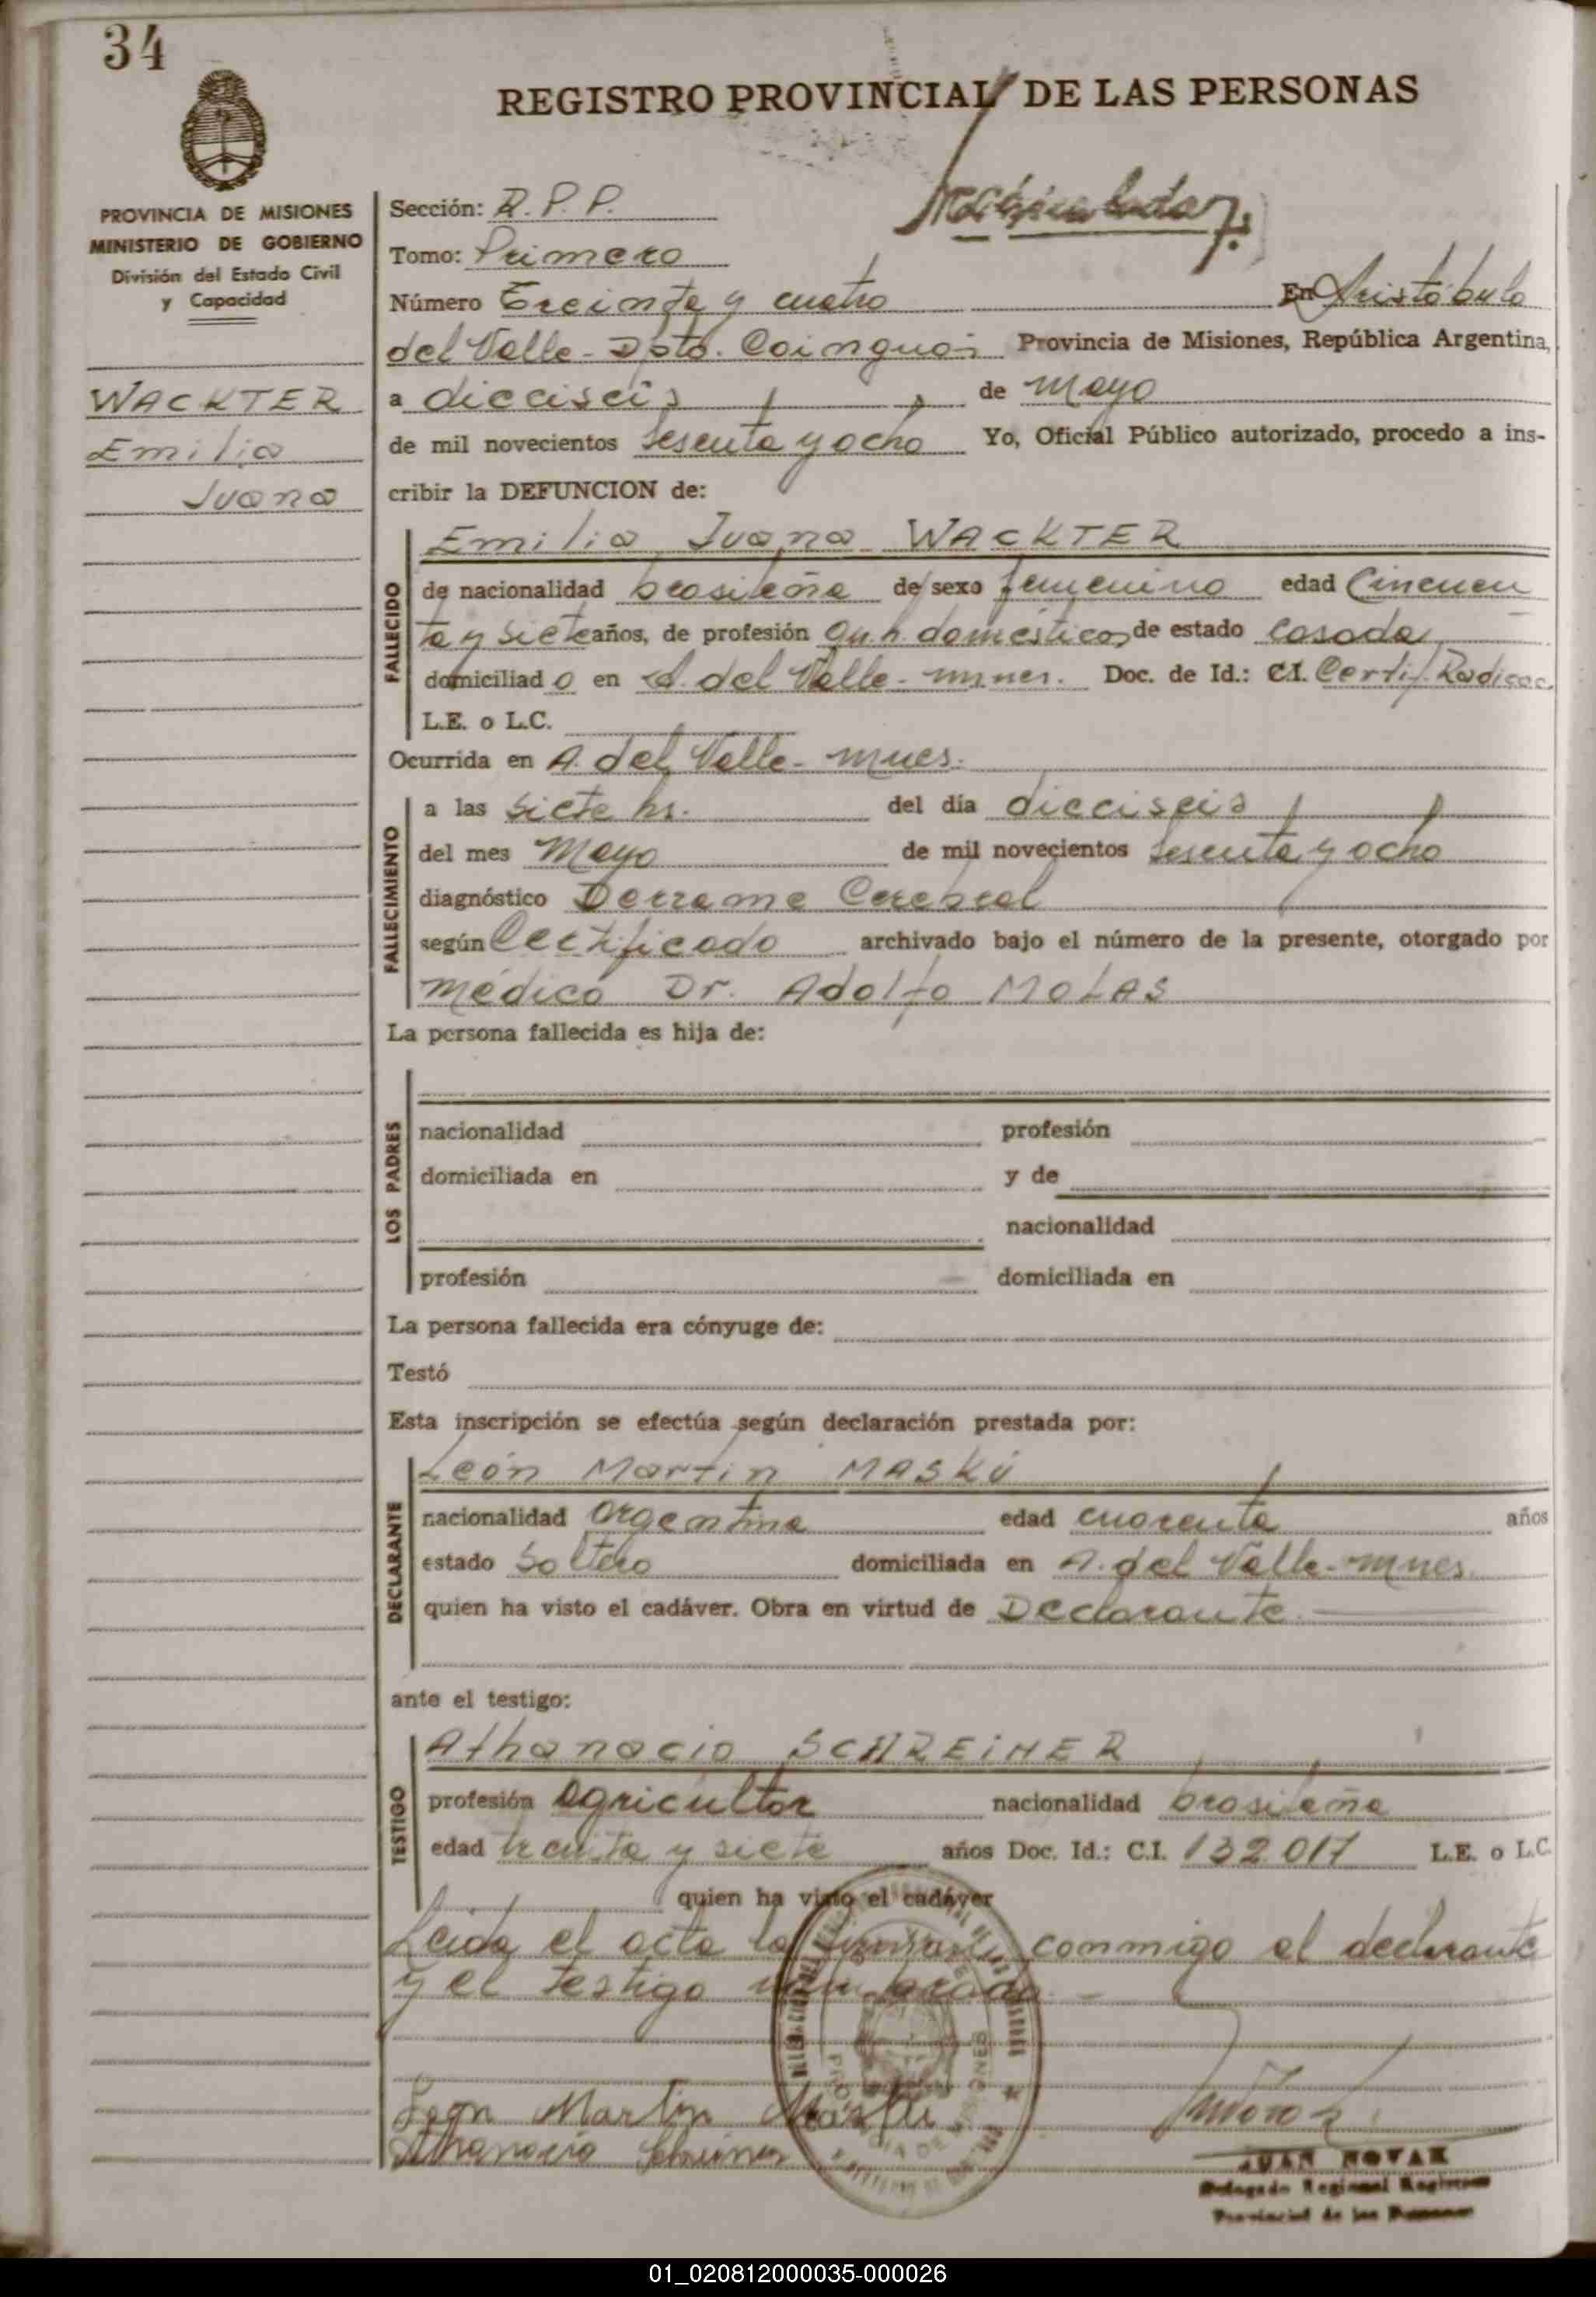 34
REGISTRO PROVINCIAL DE LAS PERSONAS
PROVINCIA DE MISIONES
MINISTERIO DE GOBIERNO
División del Estado Civil
y Capacidad
WACKTER
Emilia
Juana
Sección: R. P. P.
Tomo: Primero
Número Treinta y cuatro En Aristóbulo
del Valle - Dpto. Cainguás Provincia de Misiones, República Argentina,
a dieciseis de Mayo
de mil novecientos sesenta y ocho Yo, Oficial Público autorizado, procedo a ins-
cribir la DEFUNCION de:
FALLECIDO
Emilia Juana WACKTER
de nacionalidad brasileña de sexo femenino edad Cincuen
ta y siete años, de profesión qh. domésticos de estado casada
domiciliad o en A. del Valle - mnes. Doc. de Id.: C.I. Certif. Radicac.
L.E. o L.C.
Ocurrida en A. del Valle - mnes.
FALLECIMIENTO
a las siete hs. del día dieciseis
del mes Mayo de mil novecientos sesenta y ocho
diagnóstico Derrame Cerebral
según Certificado archivado bajo el número de la presente, otorgado por
médico Dr. Adolfo MOLAS
La persona fallecida es hija de:
LOS PADRES
nacionalidad profesión
domiciliada en y de
nacionalidad
profesión domiciliada en
La persona fallecida era cónyuge de:
Testó
Esta inscripción se efectúa según declaración prestada por:
DECLARANTE
León Martin MASKÚ
nacionalidad argentina edad cuarenta años
estado soltero domiciliada en A. del Valle - mnes.
quien ha visto el cadáver. Obra en virtud de Declarante
ante el testigo:
TESTIGO
Athanacio SCHREINER
profesión agricultor nacionalidad brasileña
edad treinta y siete años Doc. Id.: C.I. 132.017 L.E. o L.C.
quien ha visto el cadáver
Leida el acta la firman conmigo el declarante
y el testigo
Leon Martin Masku
Athanacio Schreiner
JUAN NOVAK
Delegado Regional Registro
Provincial de las Personas
01_020812000035-000026